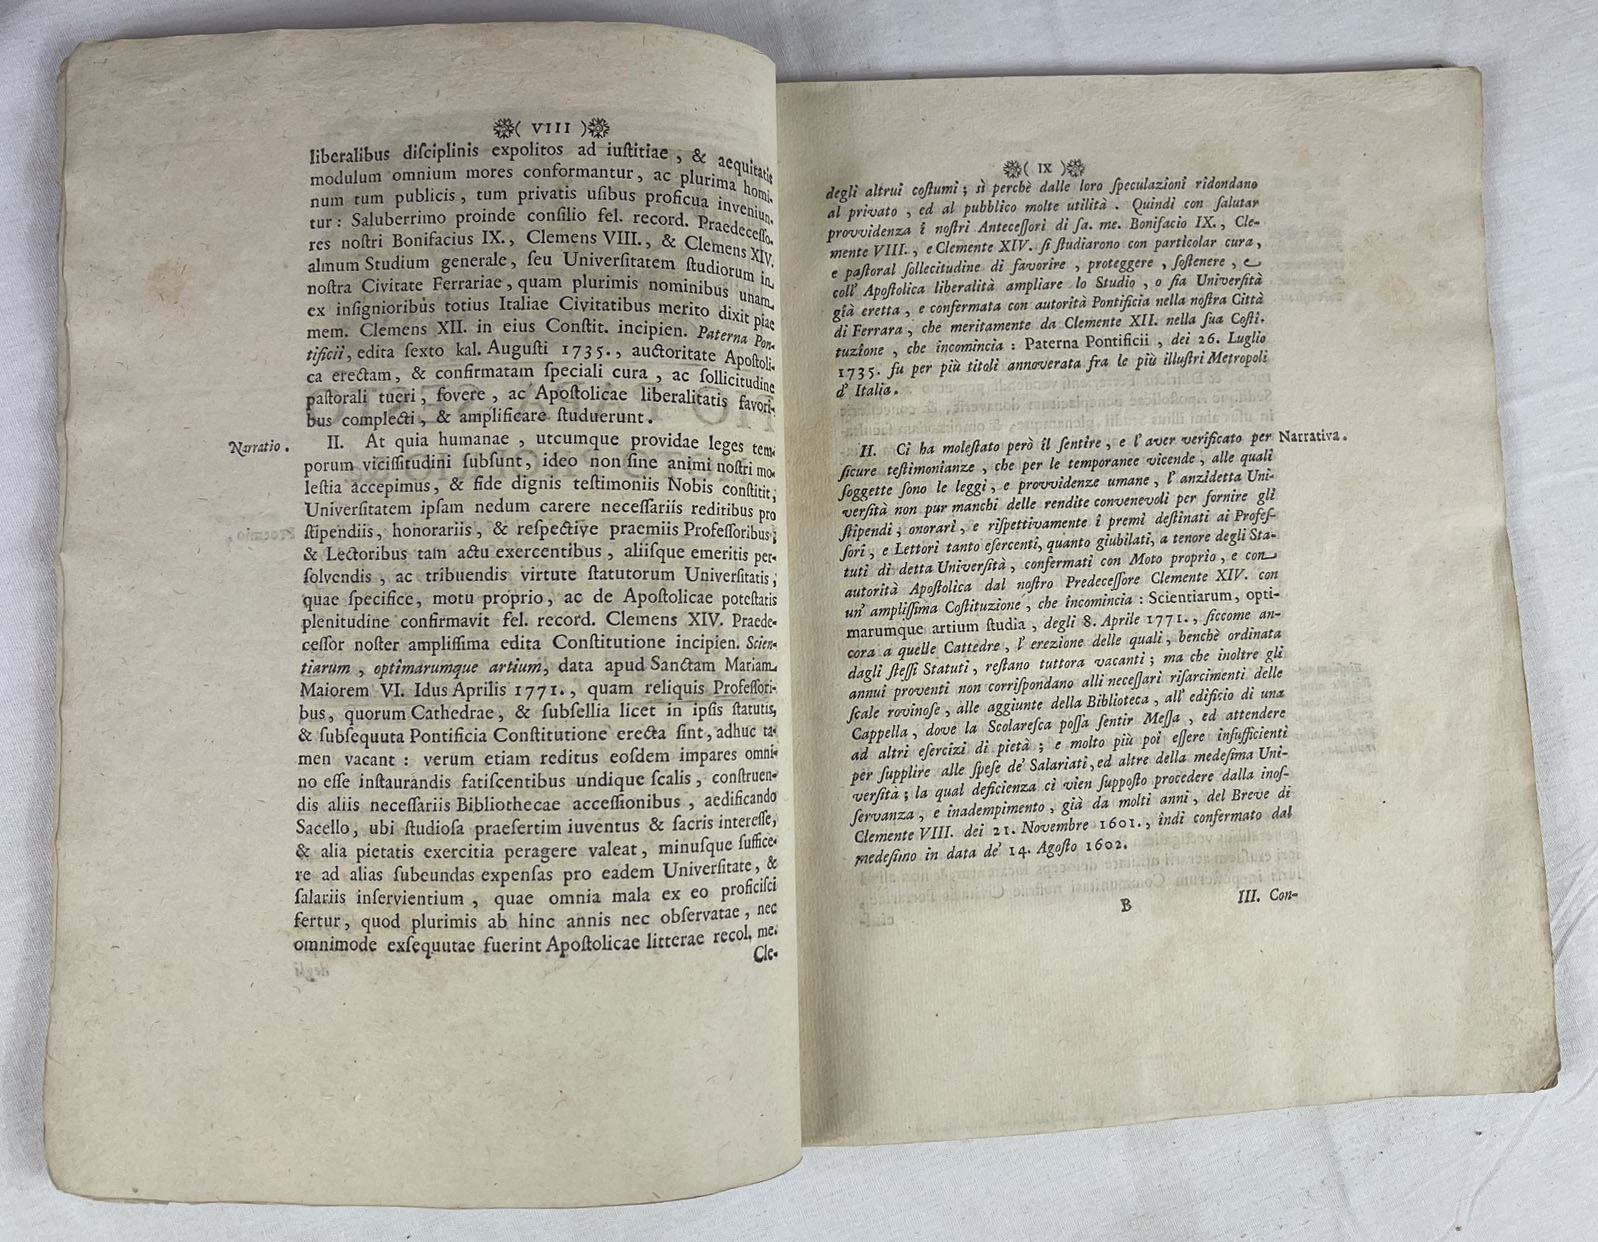 ( VIII )
liberalibus diſciplinis expolitos ad iuſtitiae , & aequitatis
modulum omnium mores conformantur, ac plurima homi-
num tum publicis, tum privatis uſibus proficua inveniun-
tur: Saluberrimo proinde conſilio fel. record. Praedeceſſo-
res noſtri Bonifacius IX., Clemens VIII., & Clemens XIV.
almum Studium generale, ſeu Univerſitatem ſtudiorum in
noſtra Civitate Ferrariae, quam plurimis nominibus unam
ex inſignioribus totius Italiae Civitatibus merito dixit piae
mem. Clemens XII. in eius Conſtit. incipien. Paterna Pon-
tificii, edita ſexto kal. Auguſti 1735., auctoritate Apoſtoli-
ca erectam, & confirmatam ſpeciali cura , ac ſollicitudine
paſtorali tueri, fovere , ac Apoſtolicae liberalitatis favori-
bus complecti, & amplificare ſtuduerunt.
Narratio.
II. At quia humanae , utcumque providae leges tem-
porum viciſſitudini ſubſunt, ideo non ſine animi noſtri mo-
leſtia accepimus, & fide dignis teſtimoniis Nobis conſtitit,
Univerſitatem ipſam nedum carere neceſſariis reditibus pro
ſtipendiis, honorariis, & reſpective praemiis Profeſſoribus,
& Lectoribus tam actu exercentibus, aliiſque emeritis per-
ſolvendis , ac tribuendis virtute ſtatutorum Univerſitatis,
quae ſpecifice, motu proprio, ac de Apoſtolicae poteſtatis
plenitudine confirmavit fel. record. Clemens XIV. Praede-
ceſſor noſter ampliſſima edita Conſtitutione incipien. Scien-
tiarum, optimarumque artium, data apud Sanctam Mariam
Maiorem VI. Idus Aprilis 1771., quam reliquis Profeſſori-
bus, quorum Cathedrae, & ſubſellia licet in ipſis ſtatutis,
& ſubſequuta Pontificia Conſtitutione erecta ſint, adhuc ta-
men vacant : verum etiam reditus eoſdem impares omni-
no eſſe inſtaurandis fatiſcentibus undique ſcalis, conſtruen-
dis aliis neceſſariis Bibliothecae acceſſionibus , aedificando
Sacello, ubi ſtudioſa praeſertim iuventus & ſacris intereſſe,
& alia pietatis exercitia peragere valeat, minuſque ſuffice-
re ad alias ſubeundas expenſas pro eadem Univerſitate, &
ſalariis inſervientium , quae omnia mala ex eo proficiſci
fertur, quod plurimis ab hinc annis nec obſervatae, nec
omnimode exſequutae fuerint Apoſtolicae litterae recol. me.
Cle-
( IX )
degli altrui coſtumi; sì perchè dalle loro ſpeculazioni ridondano
al privato , ed al pubblico molte utilità . Quindi con ſalutar
provvidenza i noſtri Anteceſſori di ſa. me. Bonifacio IX., Cle-
mente VIII., e Clemente XIV. ſi ſtudiarono con particolar cura,
e paſtoral ſollecitudine di favorire , proteggere , ſoſtenere , e
coll' Apoſtolica liberalità ampliare lo Studio , o ſia Univerſità
già eretta, e confermata con autorità Pontificia nella noſtra Città
di Ferrara, che meritamente da Clemente XII. nella ſua Coſti-
tuzione , che incomincia : Paterna Pontificii, dei 26. Luglio
1735. fu per più titoli annoverata fra le più illuſtri Metropoli
d' Italia.
II. Ci ha moleſtato però il ſentire, e l'aver verificato per
Narrativa.
ſicure teſtimonianze , che per le temporanee vicende, alle quali
ſoggette ſono le leggi, e provvidenze umane, l' anzidetta Uni-
verſità non pur manchi delle rendite convenevoli per fornire gli
ſtipendi, onorari, e riſpettivamente i premi deſtinati ai Profeſ-
ſori, e Lettori tanto eſercenti, quanto giubilati, a tenore degli Sta-
tuti di detta Univerſità, confermati con Moto proprio, e con
autorità Apoſtolica dal noſtro Predeceſſore Clemente XIV. con
un' ampliſſima Coſtituzione, che incomincia : Scientiarum, opti-
marumque artium ſtudia, degli 8. Aprile 1771., ſiccome an-
cora a quelle Cattedre, l' erezione delle quali, benchè ordinata
dagli ſteſſi Statuti, reſtano tuttora vacanti; ma che inoltre gli
annui proventi non corriſpondano alli neceſſari riſarcimenti delle
ſcale rovinoſe, alle aggiunte della Biblioteca, all' edificio di una
Cappella, dove la Scolareſca poſſa ſentir Meſſa, ed attendere
ad altri eſercizi di pietà; e molto più poi eſſere inſufficienti
per ſupplire alle ſpeſe de' Salariati, ed altre della medeſima Uni-
verſità; la qual deficienza ci vien ſuppoſto procedere dalla inoſ-
ſervanza, e inadempimento, già da molti anni, del Breve di
Clemente VIII. dei 21. Novembre 1601., indi confermato dal
medeſimo in data de' 14. Agoſto 1602.
B
III. Con-